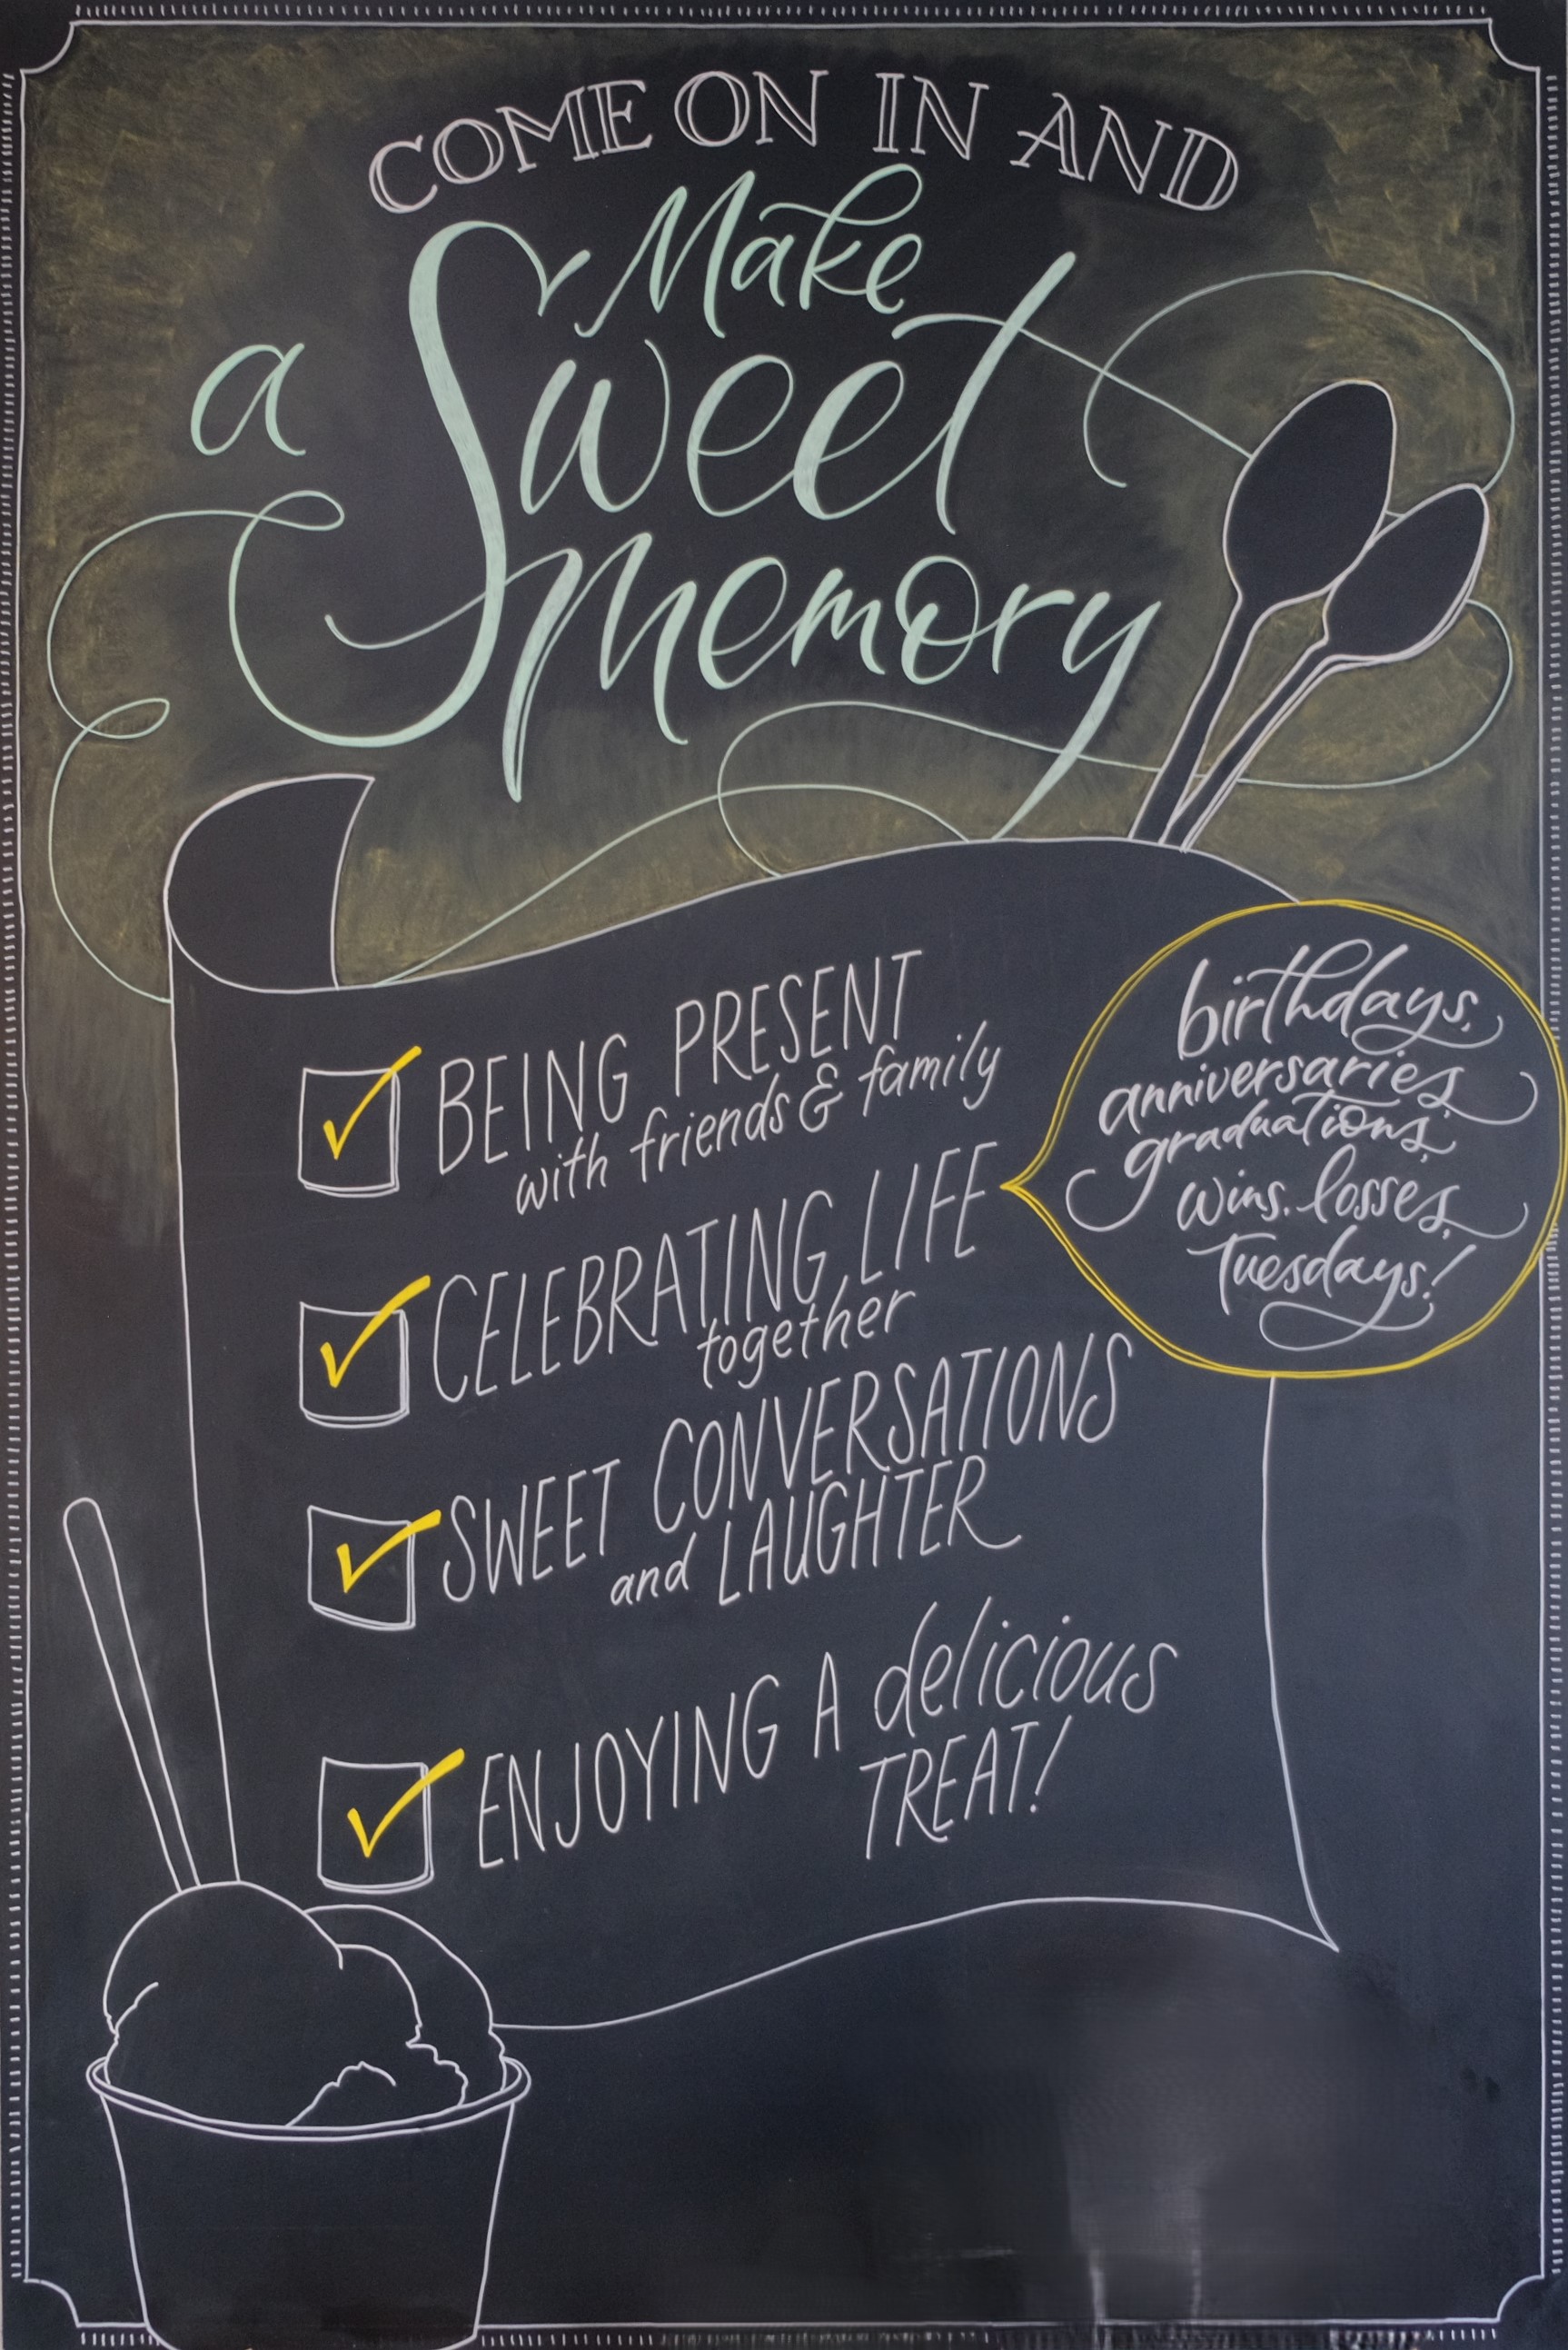 COME ON IN AND
Make
a Sweet
memory
BEING PRESENT
with friends & family
CELEBRATING LIFE
together
birthdays,
anniversaries,
graduations,
wins, losses,
Tuesdays!
SWEET CONVERSATIONS
and LAUGHTER
ENJOYING A delicious
TREAT!